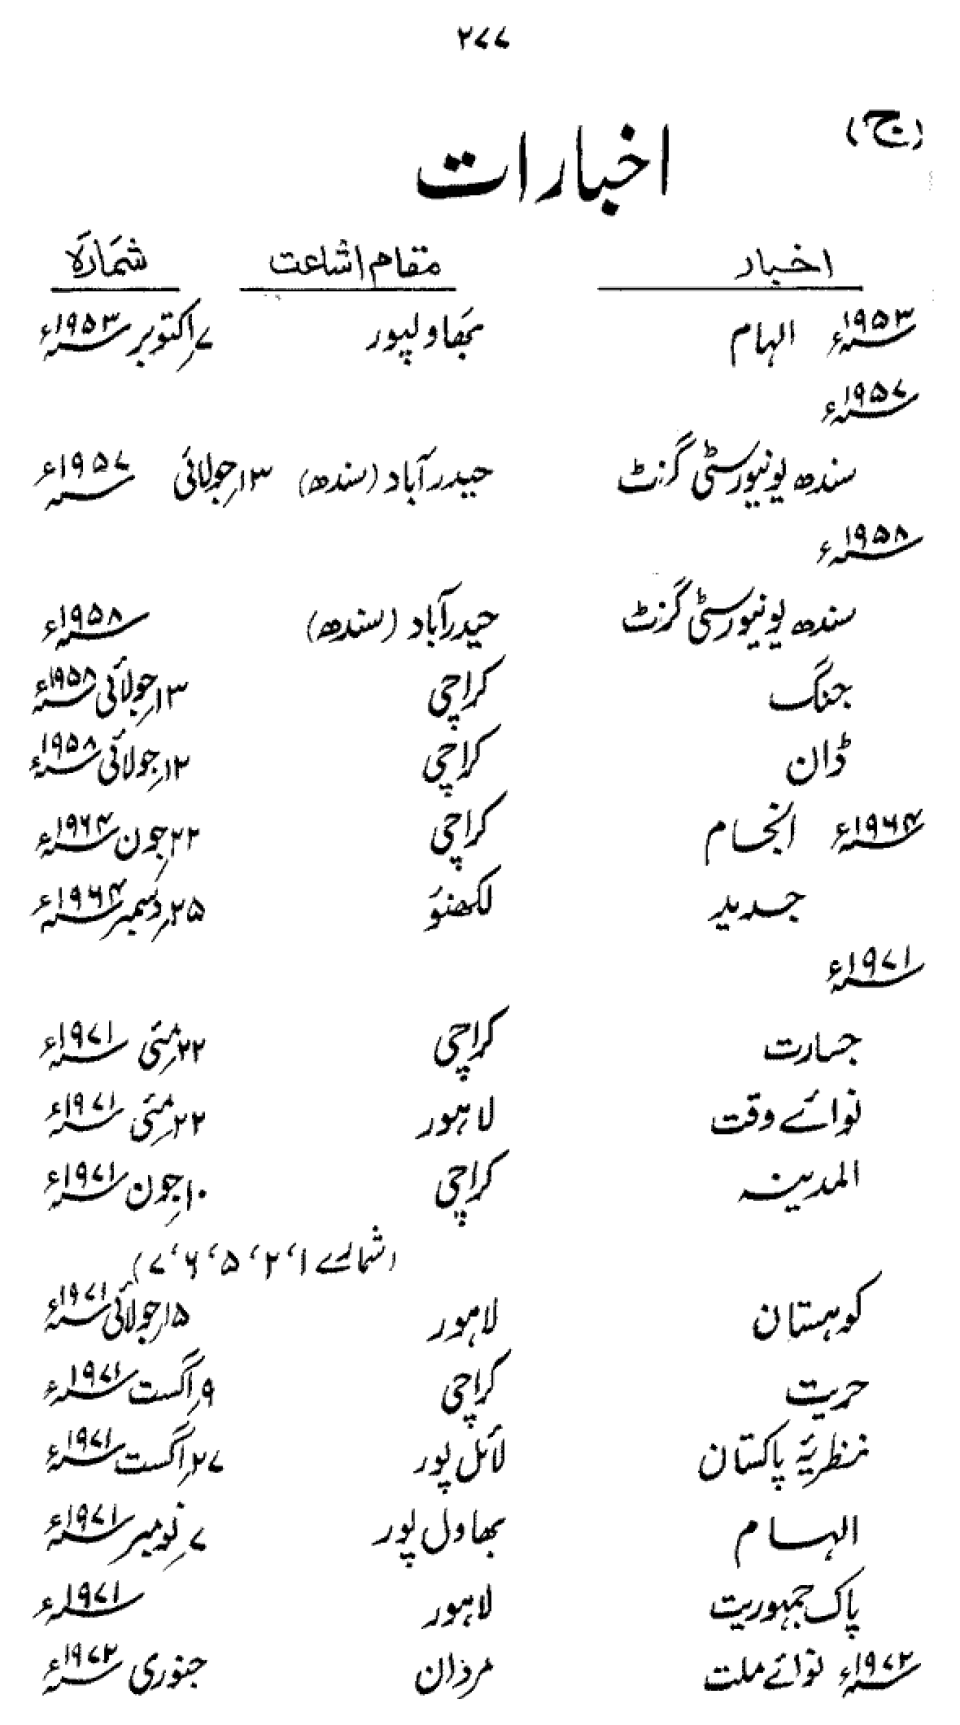 ۲۷۷
(ج)
اخبارات
اخبار مقام اشاعت شمارہ
۱۹۵۳ء الہام بھاولپور ۷؍اکتوبر ۱۹۵۳ء
۱۹۵۷ء
سندھ یونیورسٹی گزٹ حیدرآباد (سندھ) ۱۳؍جولائی ۱۹۵۷ء
۱۹۵۸ء
سندھ یونیورسٹی گزٹ حیدرآباد (سندھ) ۱۹۵۸ء
جنگ کراچی ۱۳؍جولائی ۱۹۵۸ء
ڈان کراچی ۱۲؍جولائی ۱۹۵۸ء
۱۹۶۴ء انجام کراچی ۲۲؍جون ۱۹۶۴ء
جدید لکھنؤ ۲۵؍دسمبر ۱۹۶۴ء
۱۹۷۱ء
جسارت کراچی ۲۲؍مئی ۱۹۷۱ء
نوائے وقت لاہور ۲۲؍مئی ۱۹۷۱ء
المدینہ کراچی ۱۰؍جون ۱۹۷۱ء
(شمارے ۱، ۲، ۵، ۶، ۷)
کوہستان لاہور ۱۵؍جولائی ۱۹۷۱ء
حریت کراچی ۹؍اگست ۱۹۷۱ء
نظریۂ پاکستان لائل پور ۲۷؍اگست ۱۹۷۱ء
الہام بھاول پور ۷؍نومبر ۱۹۷۱ء
پاک جمہوریت لاہور ۱۹۷۱ء
۱۹۷۲ء نوائے ملت مردان جنوری ۱۹۷۲ء